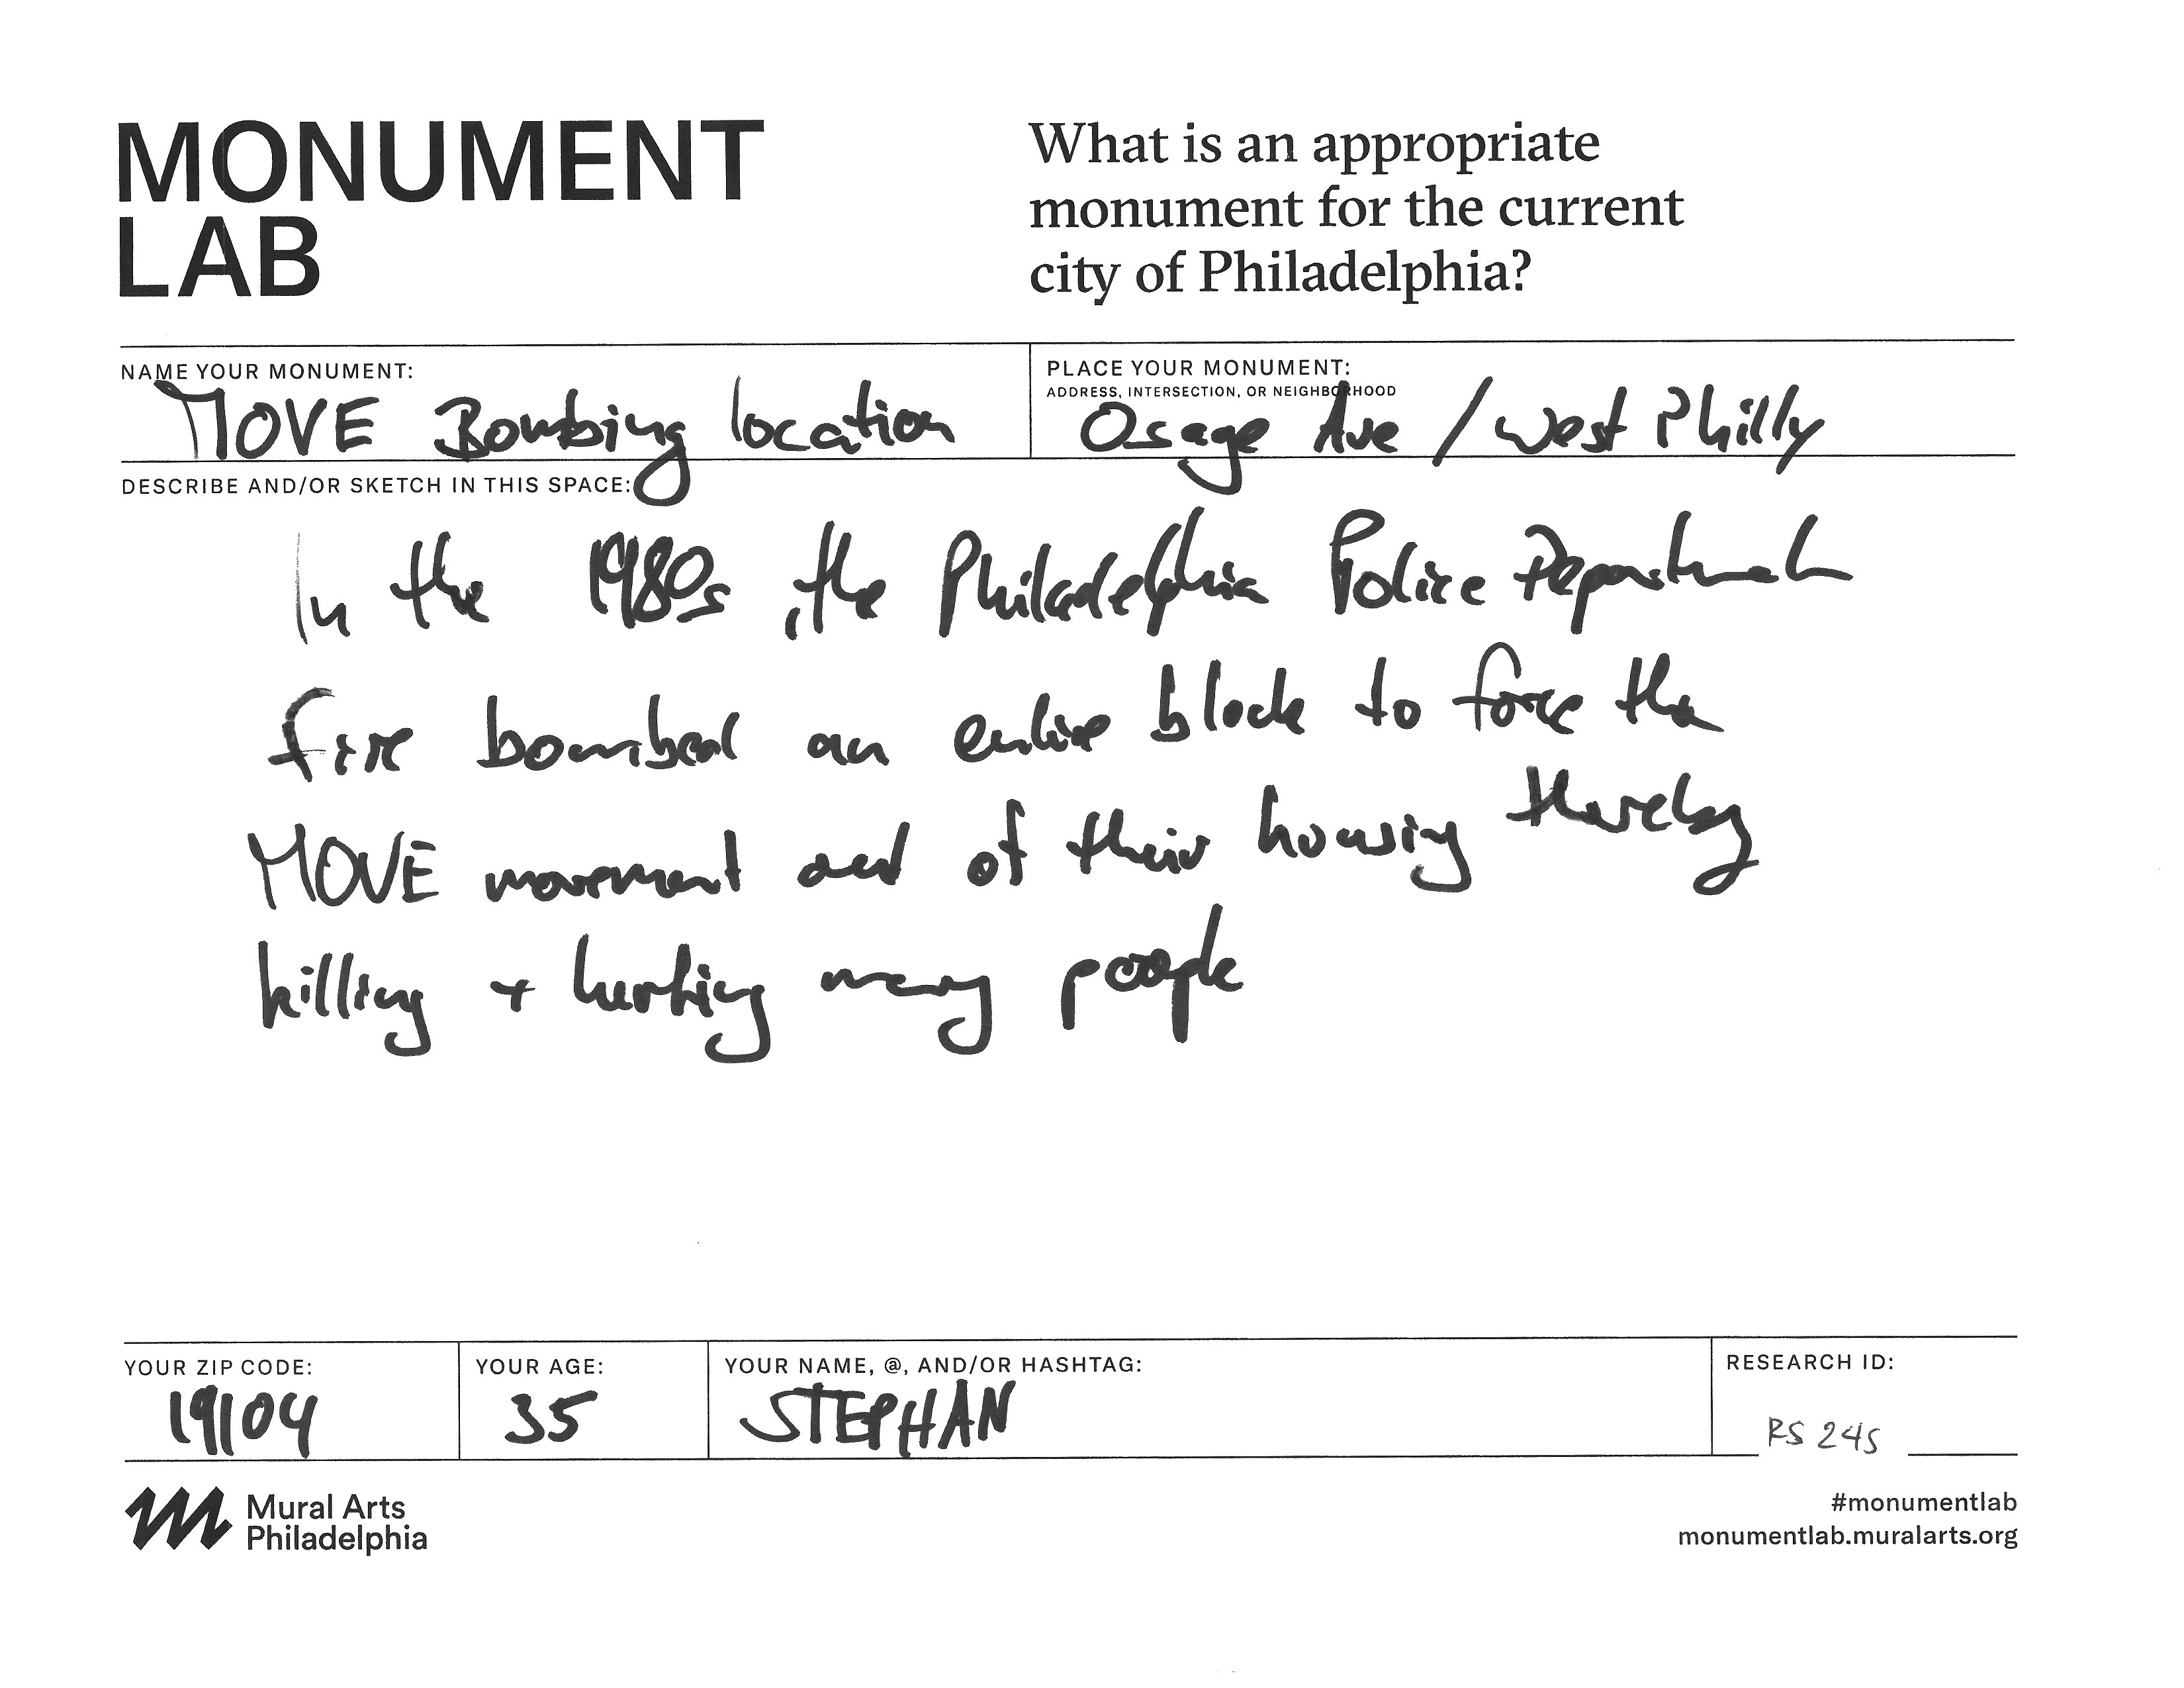 MONUMENT
LAB
What is an appropriate
monument for the current
city of Philadelphia?
NAME YOUR MONUMENT:
MOVE Bombing location
PLACE YOUR MONUMENT:
ADDRESS, INTERSECTION, OR NEIGHBORHOOD
Osage Ave / West Philly
DESCRIBE AND/OR SKETCH IN THIS SPACE:
In the 1980s, the Philadelphia Police Department
fire bombed an entire block to force the
MOVE movement out of their housing thereby
killing + hurting many people
YOUR ZIP CODE:
19104
YOUR AGE:
35
YOUR NAME, @, AND/OR HASHTAG:
STEPHAN
RESEARCH ID:
RS 245
Mural Arts
Philadelphia
#monumentlab
monumentlab.muralarts.org